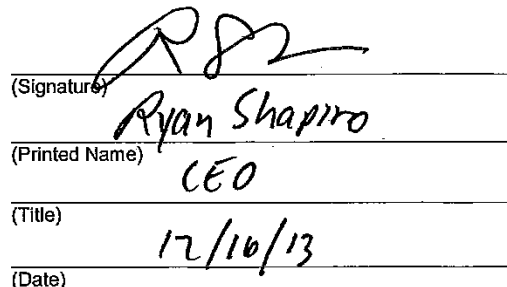 (Signature)
Ryan Shapiro
(Printed Name)
CEO
(Title)
12/16/13
(Date)